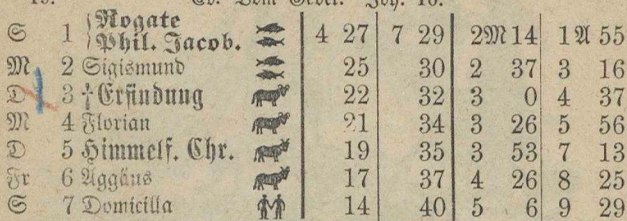 S 1 Rogate
Phil. Jacob. 4 27 7 29 2M 14 1A 55
M 2 Sigismund 25 30 2 37 3 16
D 3 †Erfindung 22 32 3 0 4 37
M 4 Florian 21 34 3 26 5 56
D 5 Himmelf. Chr. 19 35 3 53 7 13
Fr 6 Aggäus 17 37 4 26 8 25
S 7 Domicilla 14 40 5 6 9 29